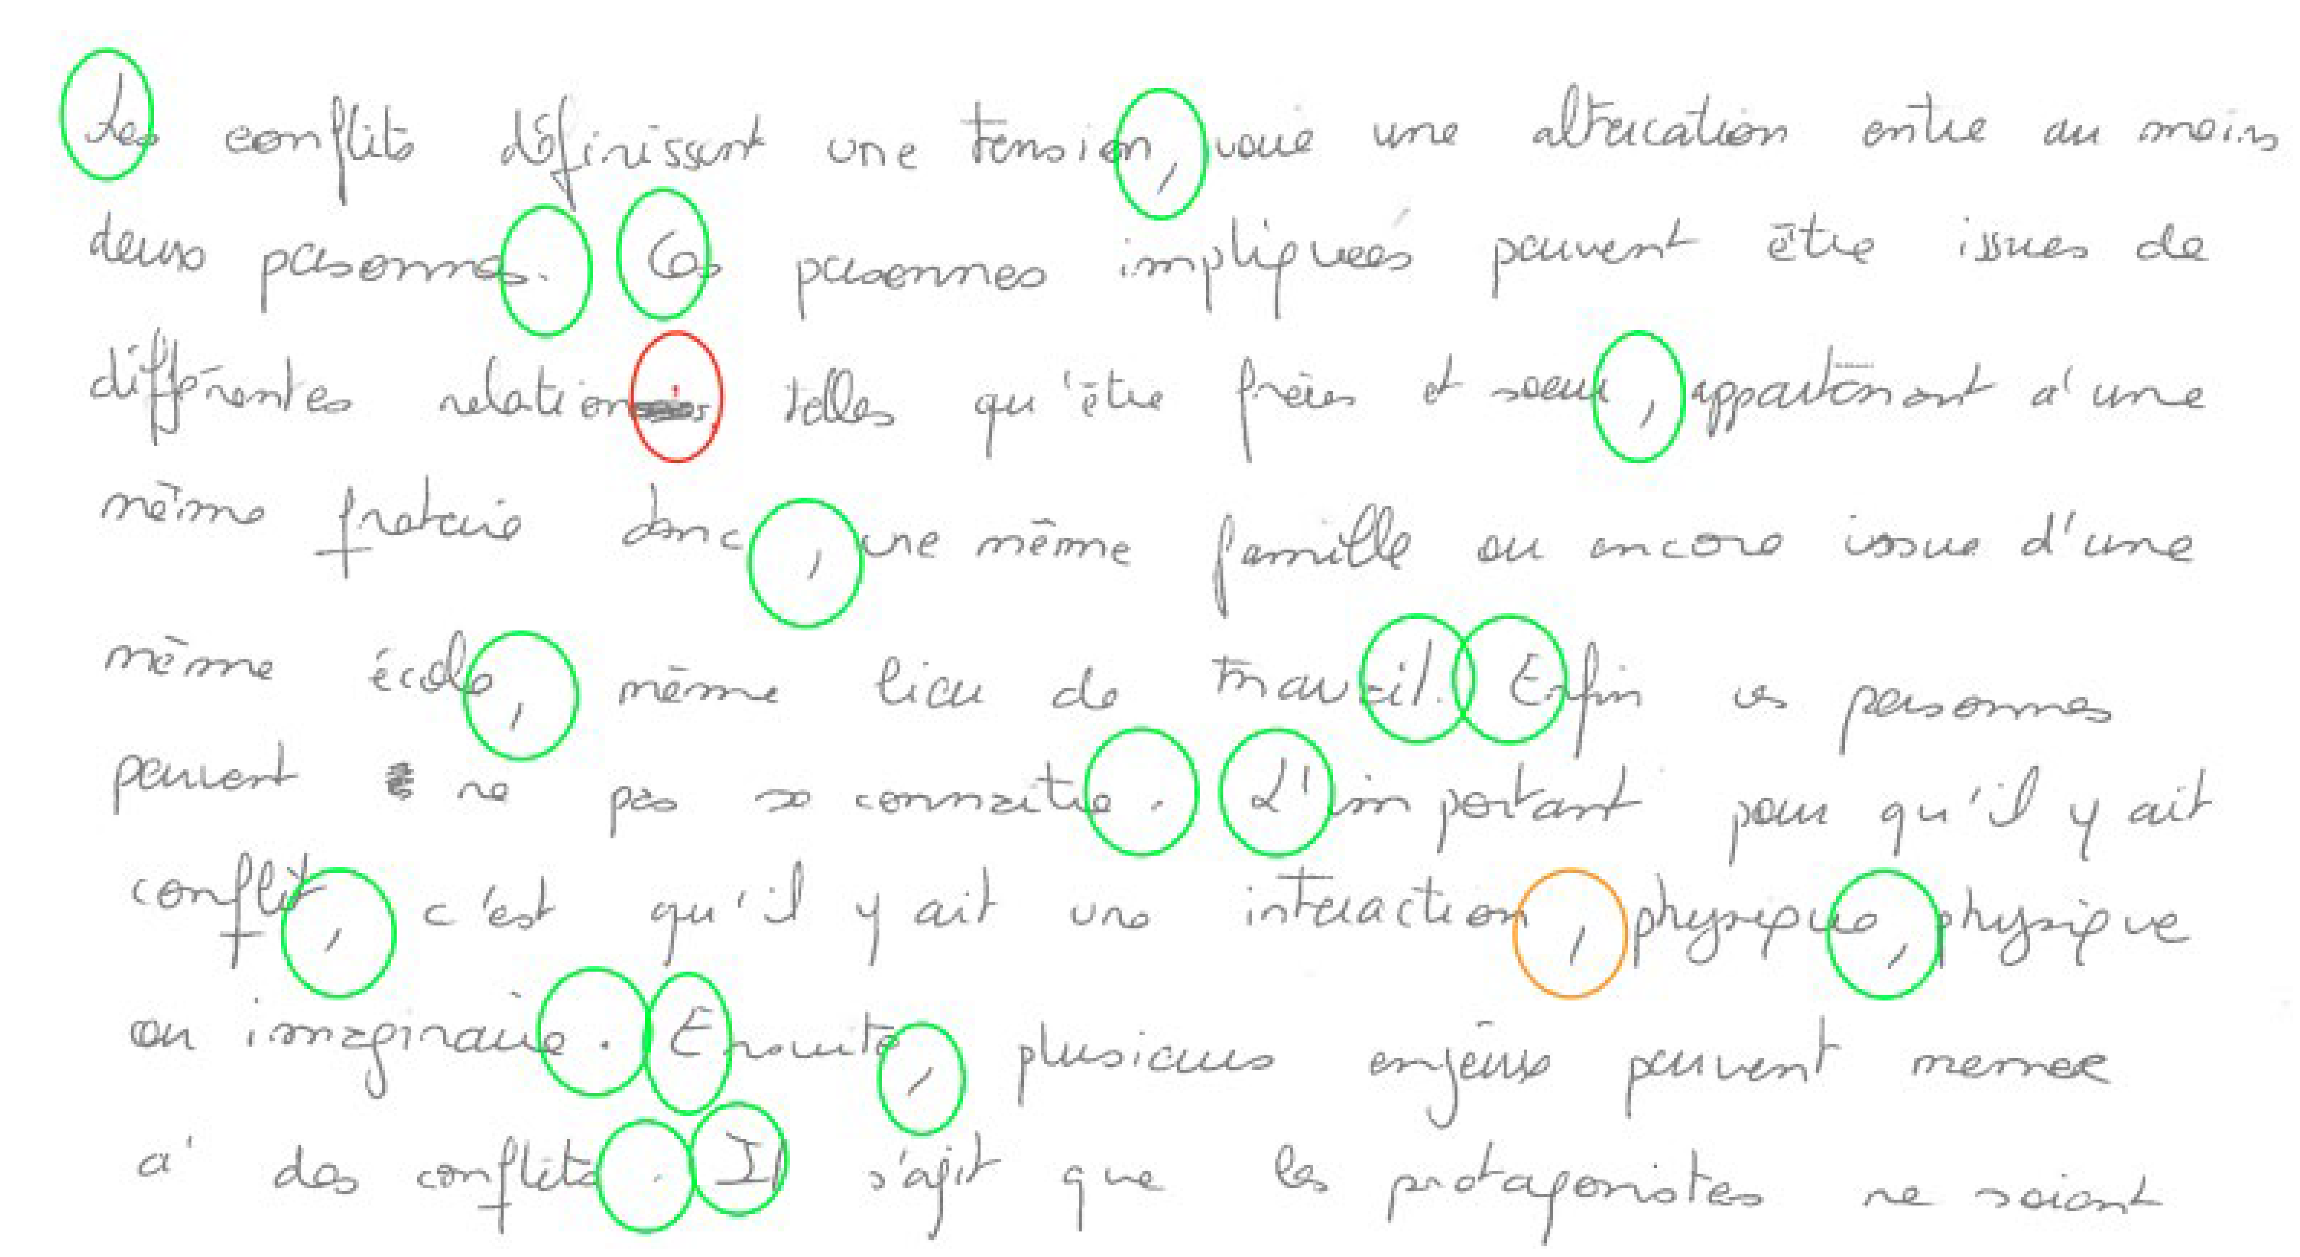 Les conflits définissent une tension, voire une altercation entre au moins
deux personnes. Ces personnes impliquées peuvent être issues de
différentes relations telles qu'être frères et soeur, appartenant à une
même fraterie donc, une même famille ou encore issue d'une
même école, même lieu de travail. Enfin ces personnes
peuvent ne pas se connaitre. L'important pour qu'il y ait
conflit, c'est qu'il y ait une interaction, physique, physique
ou imaginaire. Ensuite, plusieurs enjeux peuvent mener
à des conflits. Il s'agit que les protagonistes ne soient